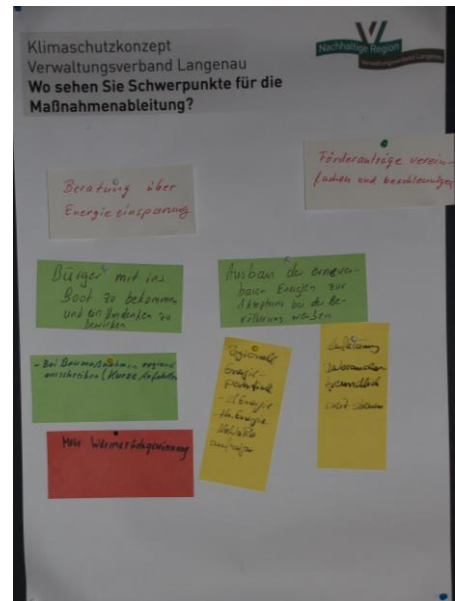 Klimaschutzkonzept
Verwaltungsverband Langenau
Wo sehen Sie Schwerpunkte für die
Maßnahmenableitung?
Nachhaltige Region
Verwaltungsverband Langenau
Förderanträge verein-
fachen und beschleunigen
Beratung über
Energieeinsparung
Bürger mit ins
Boot zu bekommen
und ein Umdenken zu
bewirken
Ausbau der erneuer-
baren Energien zur
Akzeptanz bei der Be-
völkerung werben
- Bei Baumaßnahmen regional
ausschreiben (Kurze Anfahrten
Mehr Wärmerückgewinnung
Regionale
Energie-
potentiale